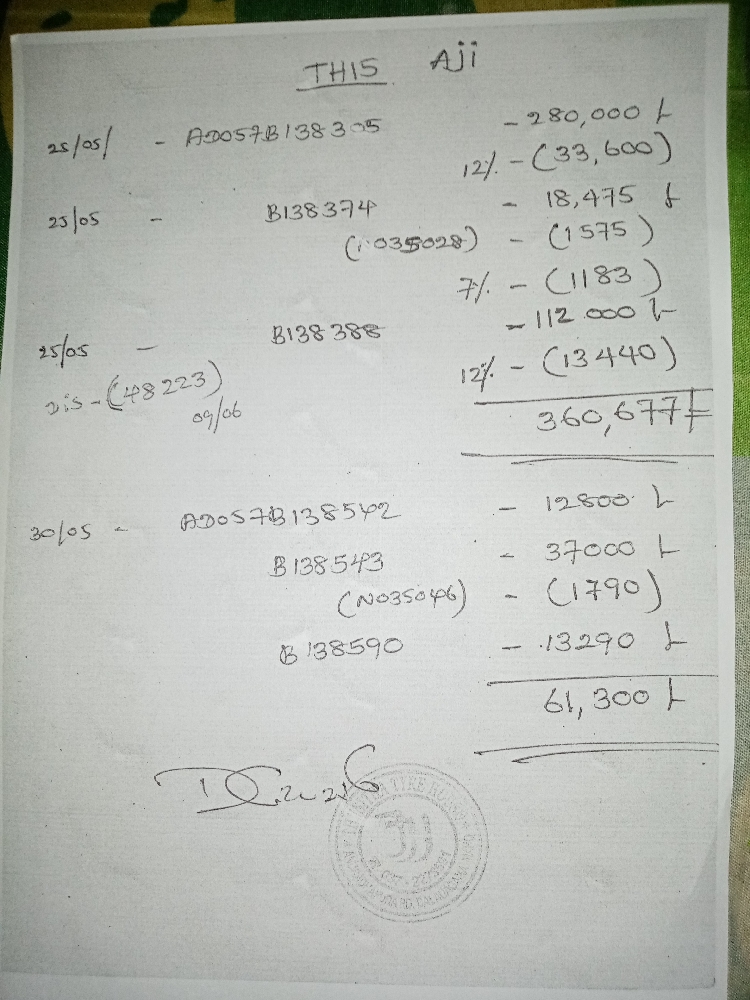 THIS Aji
25/05/ - AD057B138305 - 280,000 L
12% - (33,600)
25/05 - B138374 - 18,475
(N035028) - (1575)
7% - (1183)
25/05 - B138388 - 112.000 L
12% - (13440)
Dis - (48223)
09/06
360,677
30/05 - AD057B138542 - 12800 L
B138543 - 37000 L
(N035046) - (1790)
B138590 - 13290 L
61,300 L
TIRE